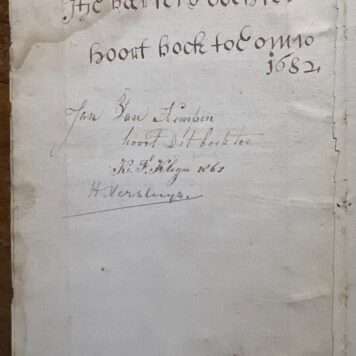 hoort boek toe anno
1682
Jan Van Kempen
hoort dit boek toe
K. F. Kleyn 1861
H. Versluys.